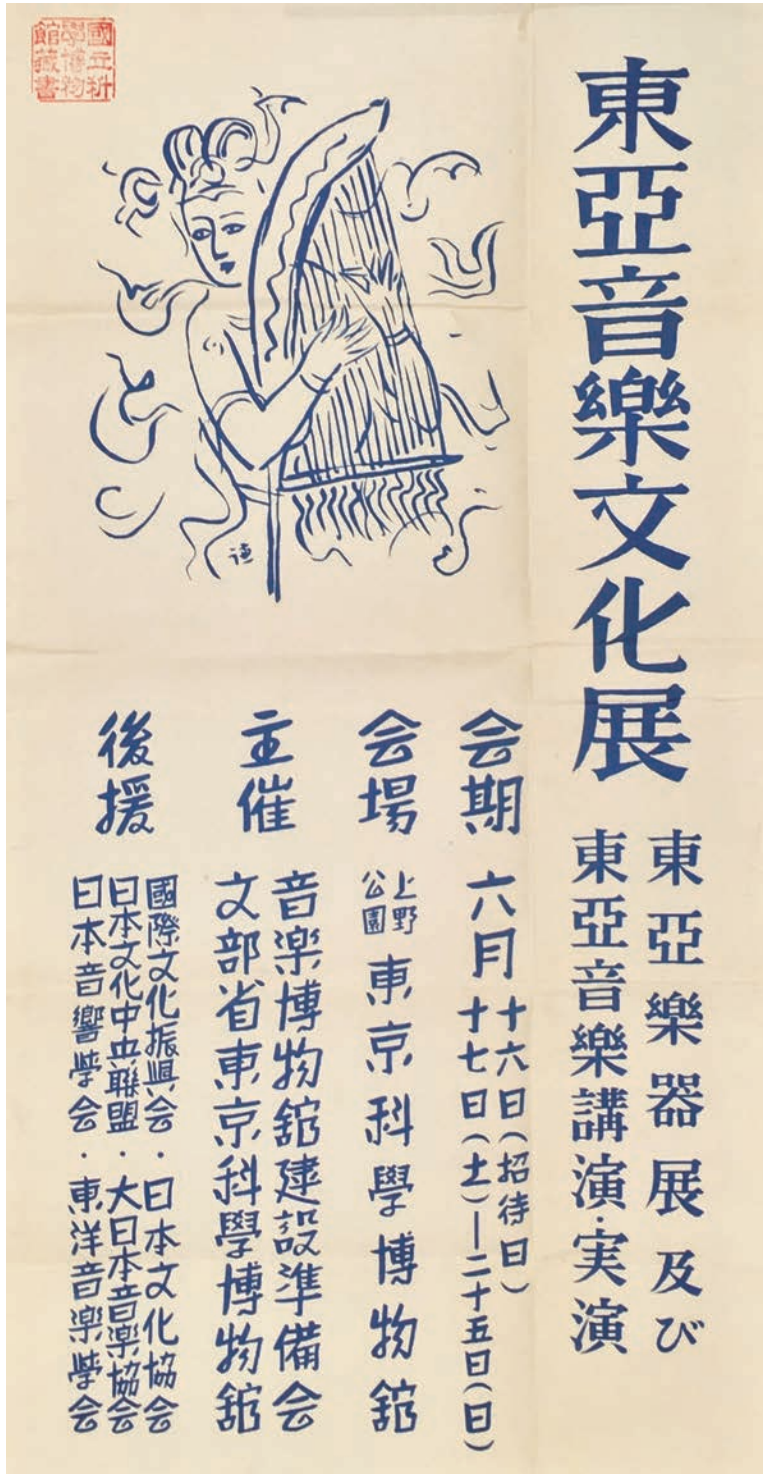 東亞音樂文化展
東亞樂器展及び
東亞音樂講演・実演
会期
六月
十六日(招待日)
十七日(土)―二十五日(日)
会場
上野
公園
東京科學博物舘
主催
音楽博物舘建設準備会
文部省東京科學博物舘
後援
國際文化振興会・日本文化協会
日本文化中央聯盟・大日本音楽協会
日本音響学会・東洋音楽学会
國立科
學博物
館蔵書